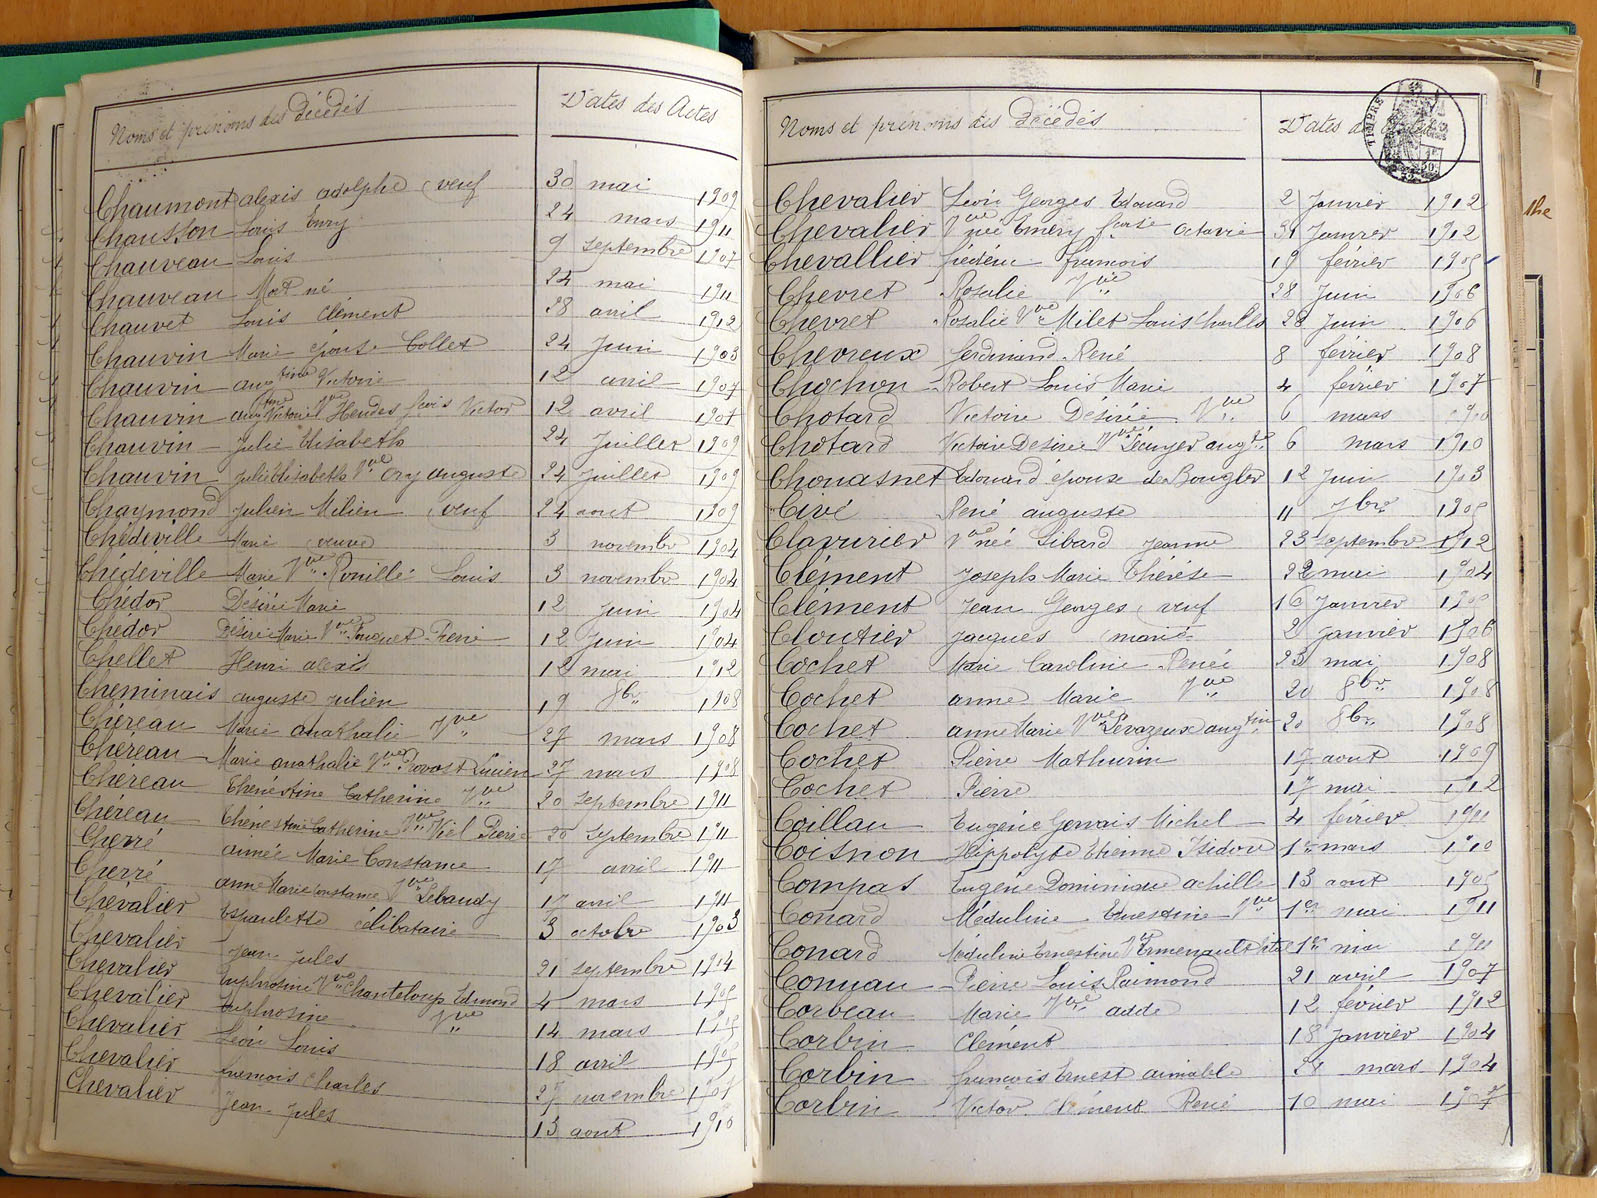 Noms et prénoms des Décédés Dates des Actes
Chaumont alexis adolphe veuf 30 mai 1909
Chausson Louis Emy 24 mars 1911
Chauveau Louis 9 septembre 1907
Chauveau Mort né 24 mai 1911
Chauvet Louis Clément 28 avril 1912
Chauvin Marie épouse Collet 24 Juin 1903
Chauvin augtine Victoire 12 avril 1907
Chauvin augtine Victoire Vve Hendes fcois Victor 12 avril 1907
Chauvin Julie Elisabeth 24 Juillet 1909
Chauvin Julie Elisabeth Vve Ory auguste 24 Juillet 1909
Chaymond Julien Milien veuf 24 aout 1909
Chédeville Marie veuve 3 novembre 1904
Chédeville Marie Vve Rouillé Louis 3 novembre 1904
Chédor Désirée Marie 12 Juin 1904
Chedor Désirée Marie Vve Pouquet René 12 Juin 1904
Chellet Henri alexis 12 mai 1912
Cheminais auguste Julien 19 8bre 1908
Chéreau Marie anathalie Vve 27 mars 1908
Chéreau Marie anathalie Vve Provost Lucien 27 mars 1908
Chereau Thénestine Catherine Vve 20 septembre 1911
Chereau Thénestine Catherine Vve Viel Pierre 20 septembre 1911
Cherré année Marie Constance 17 avril 1911
Cherré anne Marie Constance Vve Lebaudy 17 avril 1911
Chevalier Espaulette célibataire 3 octobre 1903
Chevalier Jean Jules 21 septembre 1914
Chevalier Euphrosine Vve Chanteloup Edmond 4 mars 1905
Chevalier Euphrosine Vve 14 mars 1905
Chevalier Léon Louis 18 avril 1905
Chevalier francois Charles 27 novembre
Chevalier Jean Jules 13 aout 1910
Noms et prénoms des Décédés Dates des Actes
TIMBRE
Chevalier Léon Georges Edouard 2 Janvier 1912
Chevalier Vve née Emery fcoise octavie 31 Janvier 1912
Chevallier frédéric francois 19 février 1905
Chevret Rosalie Vve 28 Juin 1906
Chevret Rosalie Vve Milet Louis Charles 28 Juin 1906
Chevreux ferdinand René 8 février 1908
Chochon Robert Louis Marie 4 février 1907
Chotard Victoire Désirée Vve 6 mars 1910
Chotard Victoire Desirée Vve Lécuyer augte 6 mars 1910
Chouasnet Edouard épouse de Bougler 12 Juin 1903
Civé René auguste 11 7bre 1905
Clavurier Vve née Libard Jeanne 23 septembre 1912
Clément Joseph Marie Thérèse 22 mai 1904
Clément Jean Georges veuf 16 Janvier 1905
Cloutier Jacques marié 2 Janvier 1906
Cochet Marie Caroline Renée 23 mai 1908
Cochet anne Marie Vve 20 8bre 1908
Cochet anne Marie Vve Levazeux augtin 20 8bre 1908
Cochet Pierre Mathurin 17 aout 1909
Cochet Pierre 17 mai 1912
Coillau Eugène Gervais Michel 4 février 1911
Coisnon Hippolyte Etienne Isidore 1er mars 1910
Compas Eugène Dominique achille 13 aout 1905
Conard Méduline Ernestine Vve 1er mai 1911
Conard Meduline Ernestine Vve 1er mai 1911
Connan Pierre Louis Raimond 21 avril 1907
Corbeau Marie Vve adde 12 février 1912
Corbin Clément 18 Janvier 1904
Corbin francois Ernest aimable 24 mars 1904
Corbin Victor Clément René 10 mai 1907
the